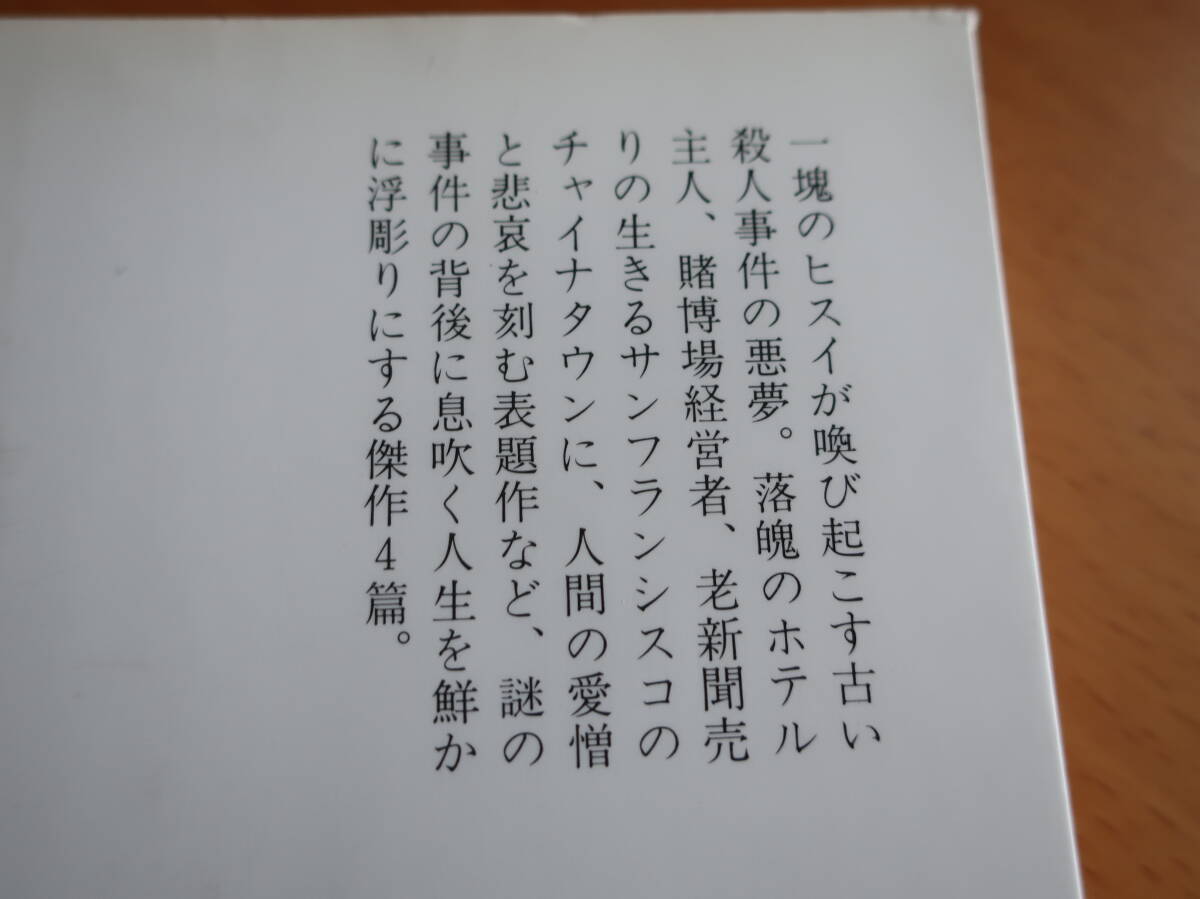 一塊のヒスイが喚び起こす古い
殺人事件の悪夢。落魄のホテル
主人、賭博場経営者、老新聞売
りの生きるサンフランシスコの
チャイナタウンに、人間の愛憎
と悲哀を刻む表題作など、謎の
事件の背後に息吹く人生を鮮か
に浮彫りにする傑作4篇。